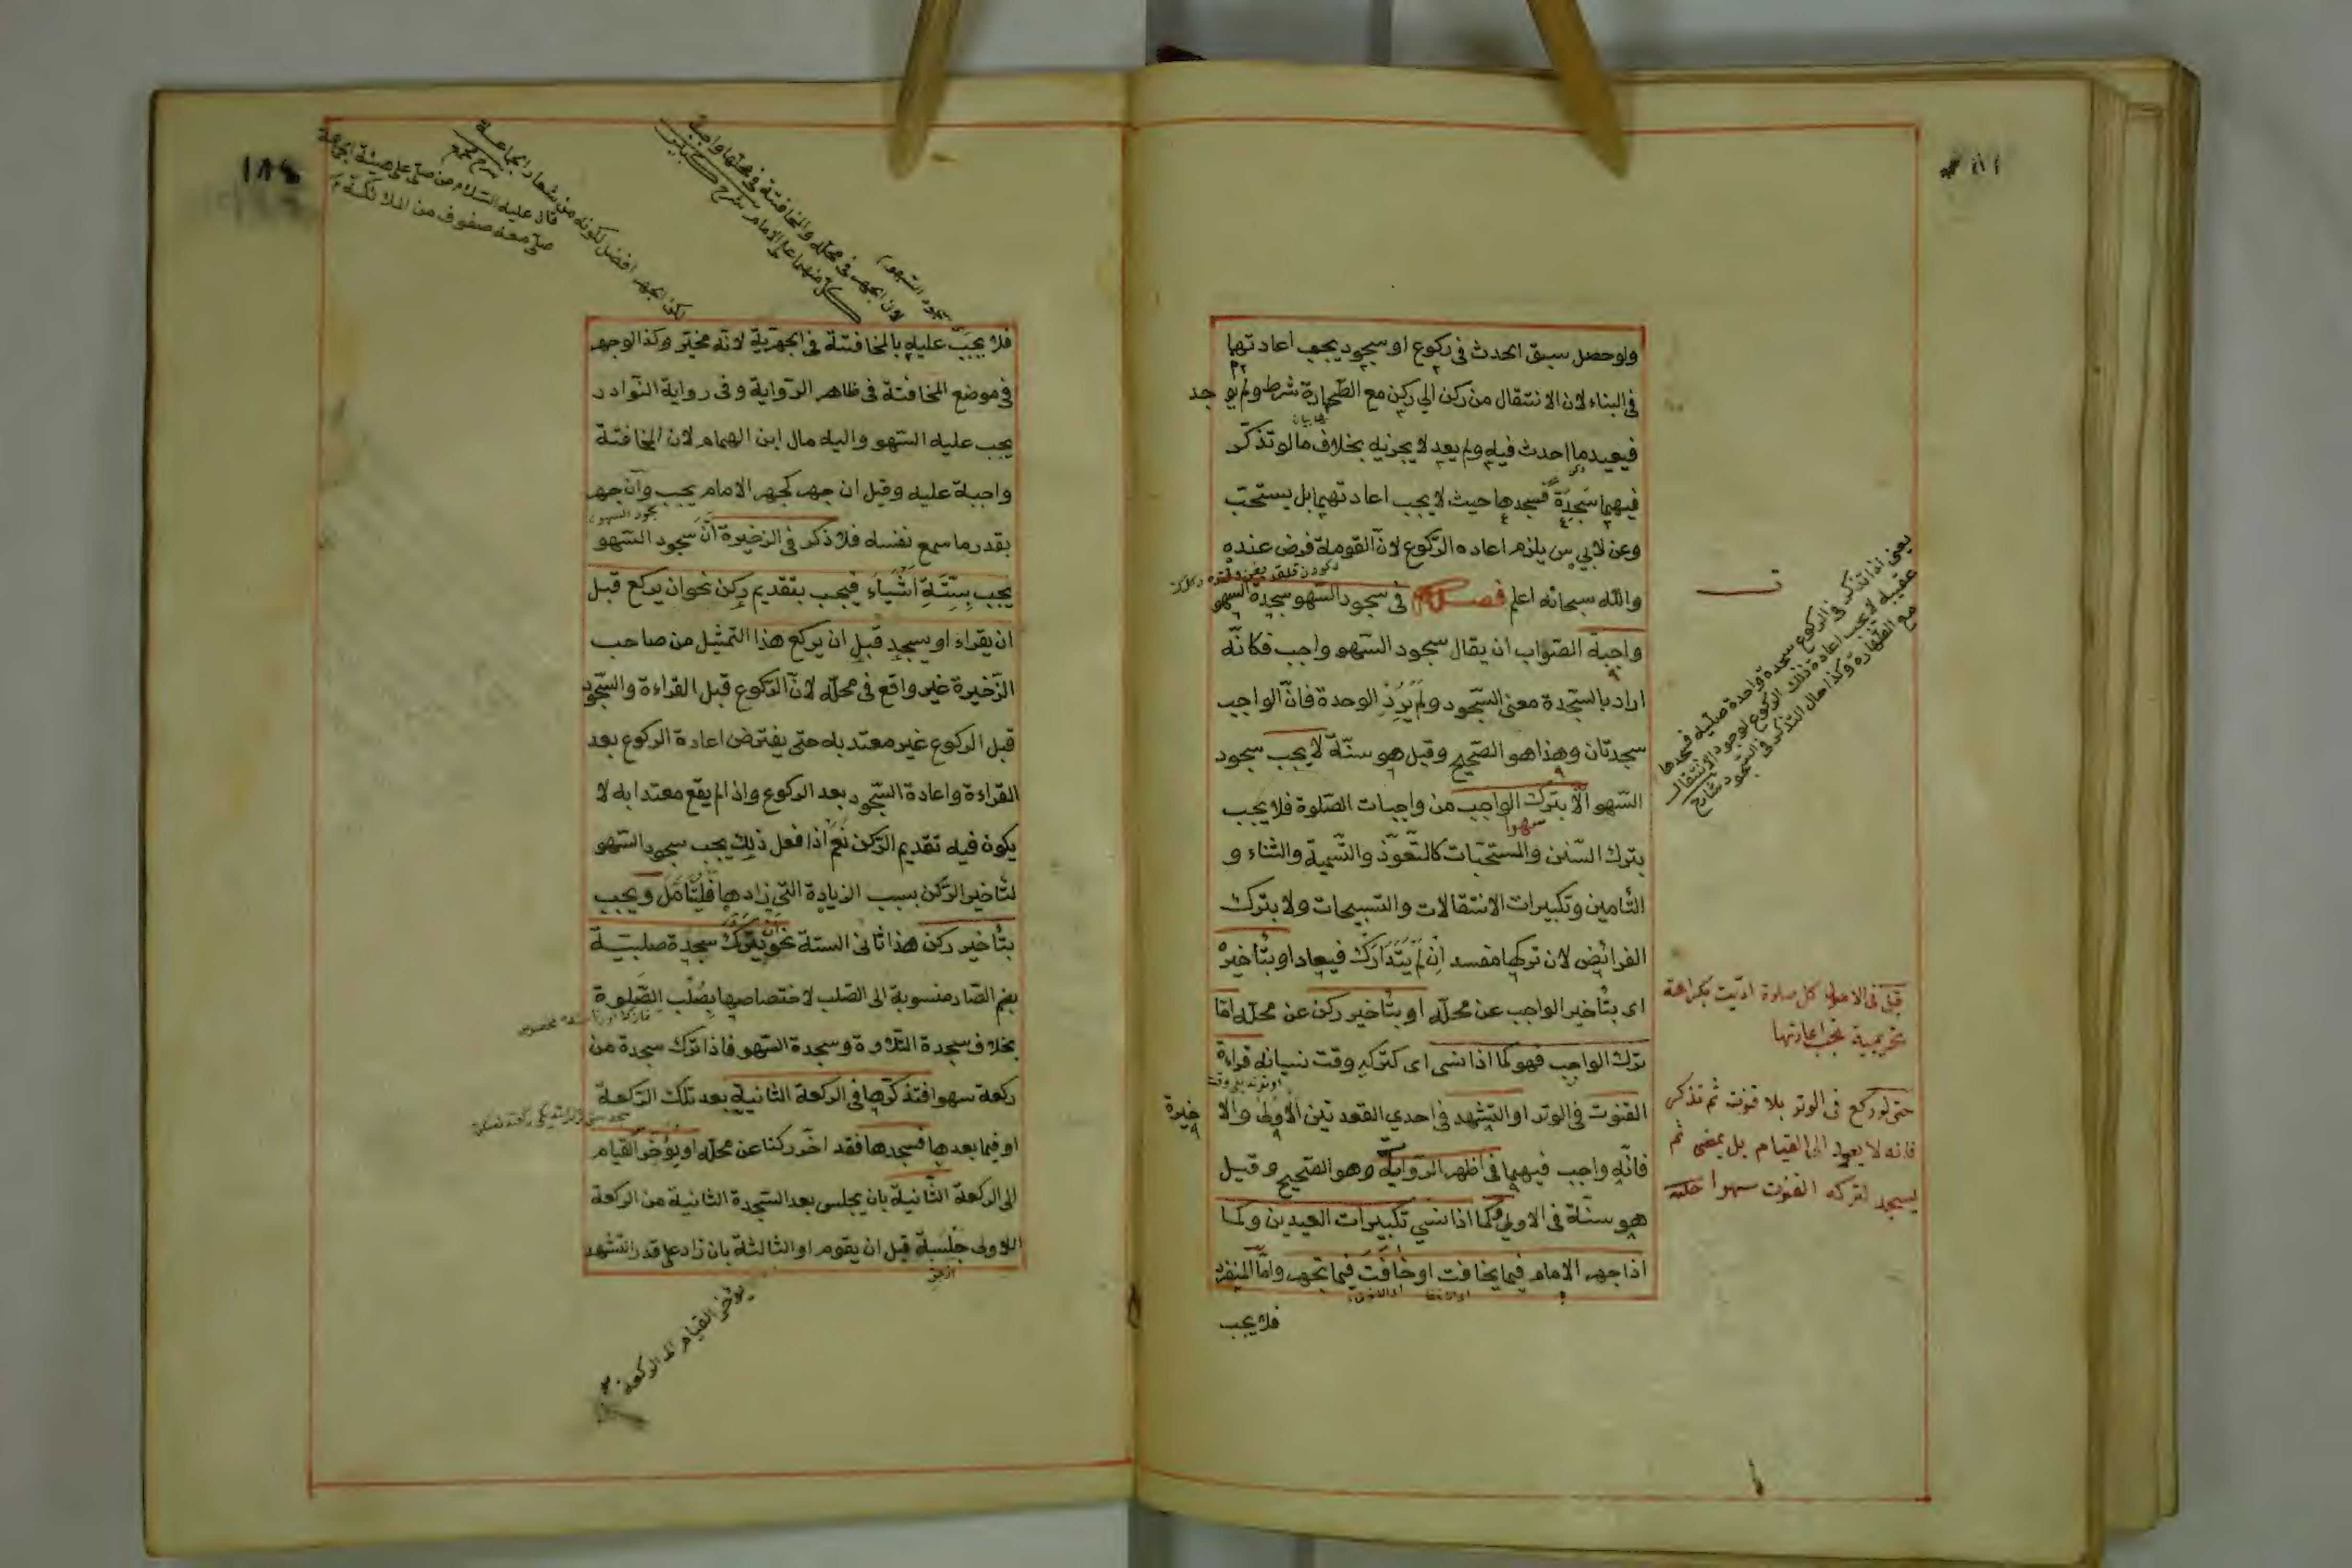 ولو حصل سبق الحدث في ركوع او سجود يجب اعادتها
في البناء لان الانتقال من ركن الى ركن مع الطهارة شرط ولم يوجد
فيعيد ما احدث فيه ولم يعد لا يجزيه بخلاف ما لو تذكر
فيهما سجدة فسجدها حيث لا يجب اعادتهما بل يستحب
وعن ابي س يلزم اعاده الركوع لان القومة فرض عنده
والله سبحانه اعلم فصل في سجود السهو سجدة السهو
واجبة الصواب ان يقال سجود السهو واجب فكانه
اراد بالسجدة معنى السجود ولم يرد الوحدة فان الواجب
سجدتان وهذا هو الصحيح وقيل هو سنة لا يجب سجود
السهو الا بترك الواجب من واجبات الصلوة فلا يجب
سهوا
بترك السنن والمستحبات كالتعوذ والتسمية والثناء و
التأمين وتكبيرات الانتقالات والتسبيحات ولا بترك
الفرائض لان تركها مفسد ان لم يتدارك فيعاد او بتأخير
اى بتأخير الواجب عن محله او بتأخير ركن عن محله اما
ترك الواجب فهو كما اذا نسى اى كتركه وقت نسيانه قراءة
القنوت في الوتر او التشهد في احدي القعدتين الاولى والا
خيرة
فانه واجب فيهما في اظهر الرواية وهو الصحيح وقيل
هو سنة في الاولى وكما اذا نسي تكبيرات العيدين وكما
اذا جهر الامام فيما يخافت او خافت فيما يجهر واما المنفرد
فلا يجب
يعنى اذا تذكر في الركوع سجدة واحدة صلبية فسجدها
عقيبه لا يجب اعادة ذلك الركوع لوجود الانتقال
مع الطهارة وكذا حال التذكر في السجود شارح
كل صلوة اديت بكراهة
تحريمية تجب اعادتها
حتى لو ركع في الوتر بلا قنوت ثم تذكر
فانه لا يعود الى القيام بل يمضى ثم
يسجد لتركه القنوت سهوا
١٨٢
سجود السهو
لان الجهر في محله والمخافتة في محلها واجبة
كل منهما على الامام شرح كبير
لكن الجهر افضل لكونه من شعار الجماعة
شرح مجمع
قال عليه السلام من صلى على هيئة الجماعة
صلى معه صفوف من الملائكة
فلا يجب عليه بالمخافتة في الجهرية لانه مخير وكذا لوجهر
في موضع المخافتة في ظاهر الرواية وفى رواية النوادر
يجب عليه السهو واليه مال ابن الهمام لان المخافتة
واجبة عليه وقيل ان جهر كجهر الامام يجب وان جهر
سجود السهو
بقدر ما سمع نفسه فلا ذكر في الذخيرة ان سجود السهو
يجب بستة اشياء فيجب بتقديم ركن نحو ان يركع قبل
ان يقراء او يسجد قبل ان يركع هذا التمثيل من صاحب
الذخيرة غير واقع في محله لان الركوع قبل القراءة والسجود
قبل الركوع غير معتد به حتى يفترض اعادة الركوع بعد
القراءة واعادة السجود بعد الركوع واذا لم يقع معتدا به لا
يكون فيه تقديم الركن نعم اذا فعل ذلك يجب سجود السهو
لتأخير الركن بسبب الزيادة التى زادها فليتأمل ويجب
بتأخير ركن هذا ثانى الستة نحو ان يترك سجدة صلبية
بضم الصاد منسوبة الى الصلب لاختصاصها بصلب الصلوة
بخلاف سجدة التلاوة وسجدة السهو فاذا ترك سجدة من
ركعة سهوا فتذكرها في الركعة الثانية بعد تلك الركعة
او فيما بعدها فسجدها فقد اخر ركنا عن محله او يؤخر القيام
الى الركعة الثانية بان يجلس بعد السجدة الثانية من الركعة
الاولى جلسة قبل ان يقوم او الثالثة بان زاد على قدر التشهد
يؤخر القيام الى الركعة